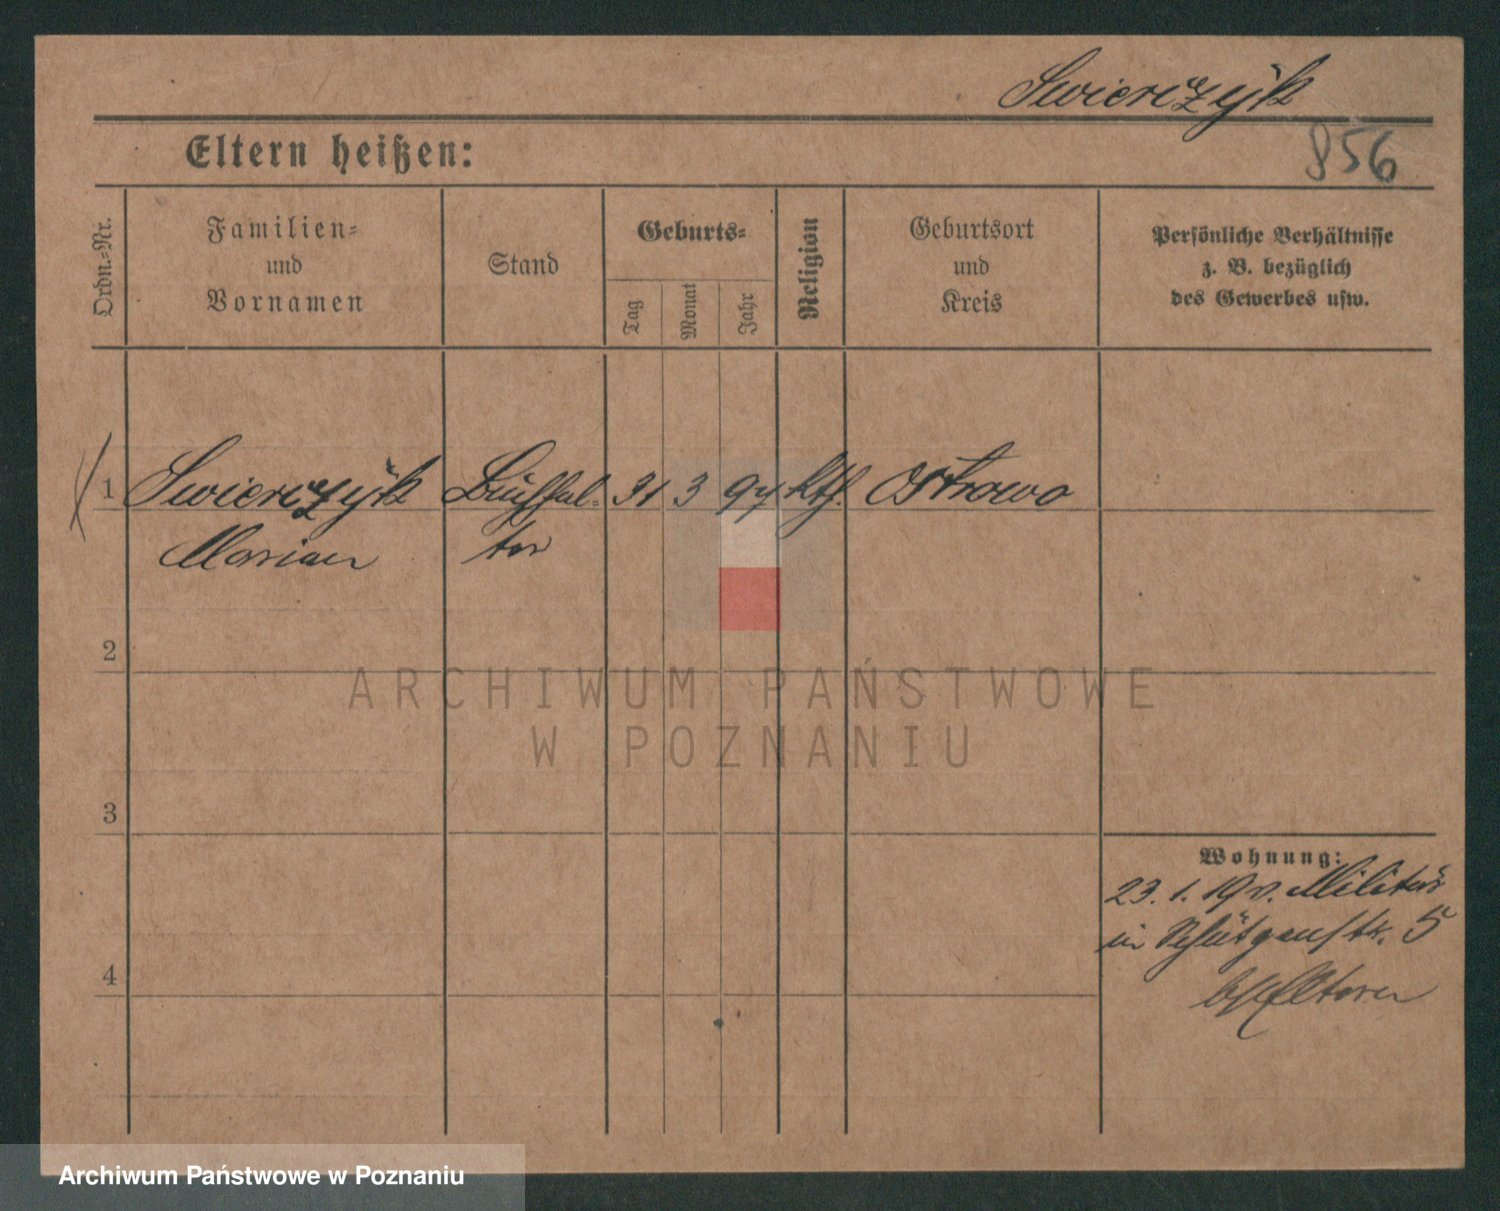 Swierczÿk
Eltern heißen:
856
Ordn.-Nr.
Familien-
und
Vornamen
Stand
Geburts-
Tag
Monat
Jahr
Religion
Geburtsort
und
Kreis
Persönliche Verhältnisse
z. B. bezüglich
des Gewerbes usw.
1 Swierczÿk Buchhal- 31 3 97 kth. Ostrowo
Marian ter
2
ARCHIWUM PAŃSTWOWE
W POZNANIU
3
Wohnung:
23. 1. 19 v. Militär
in 5
4
b/ Eltern
Archiwum Państwowe w Poznaniu